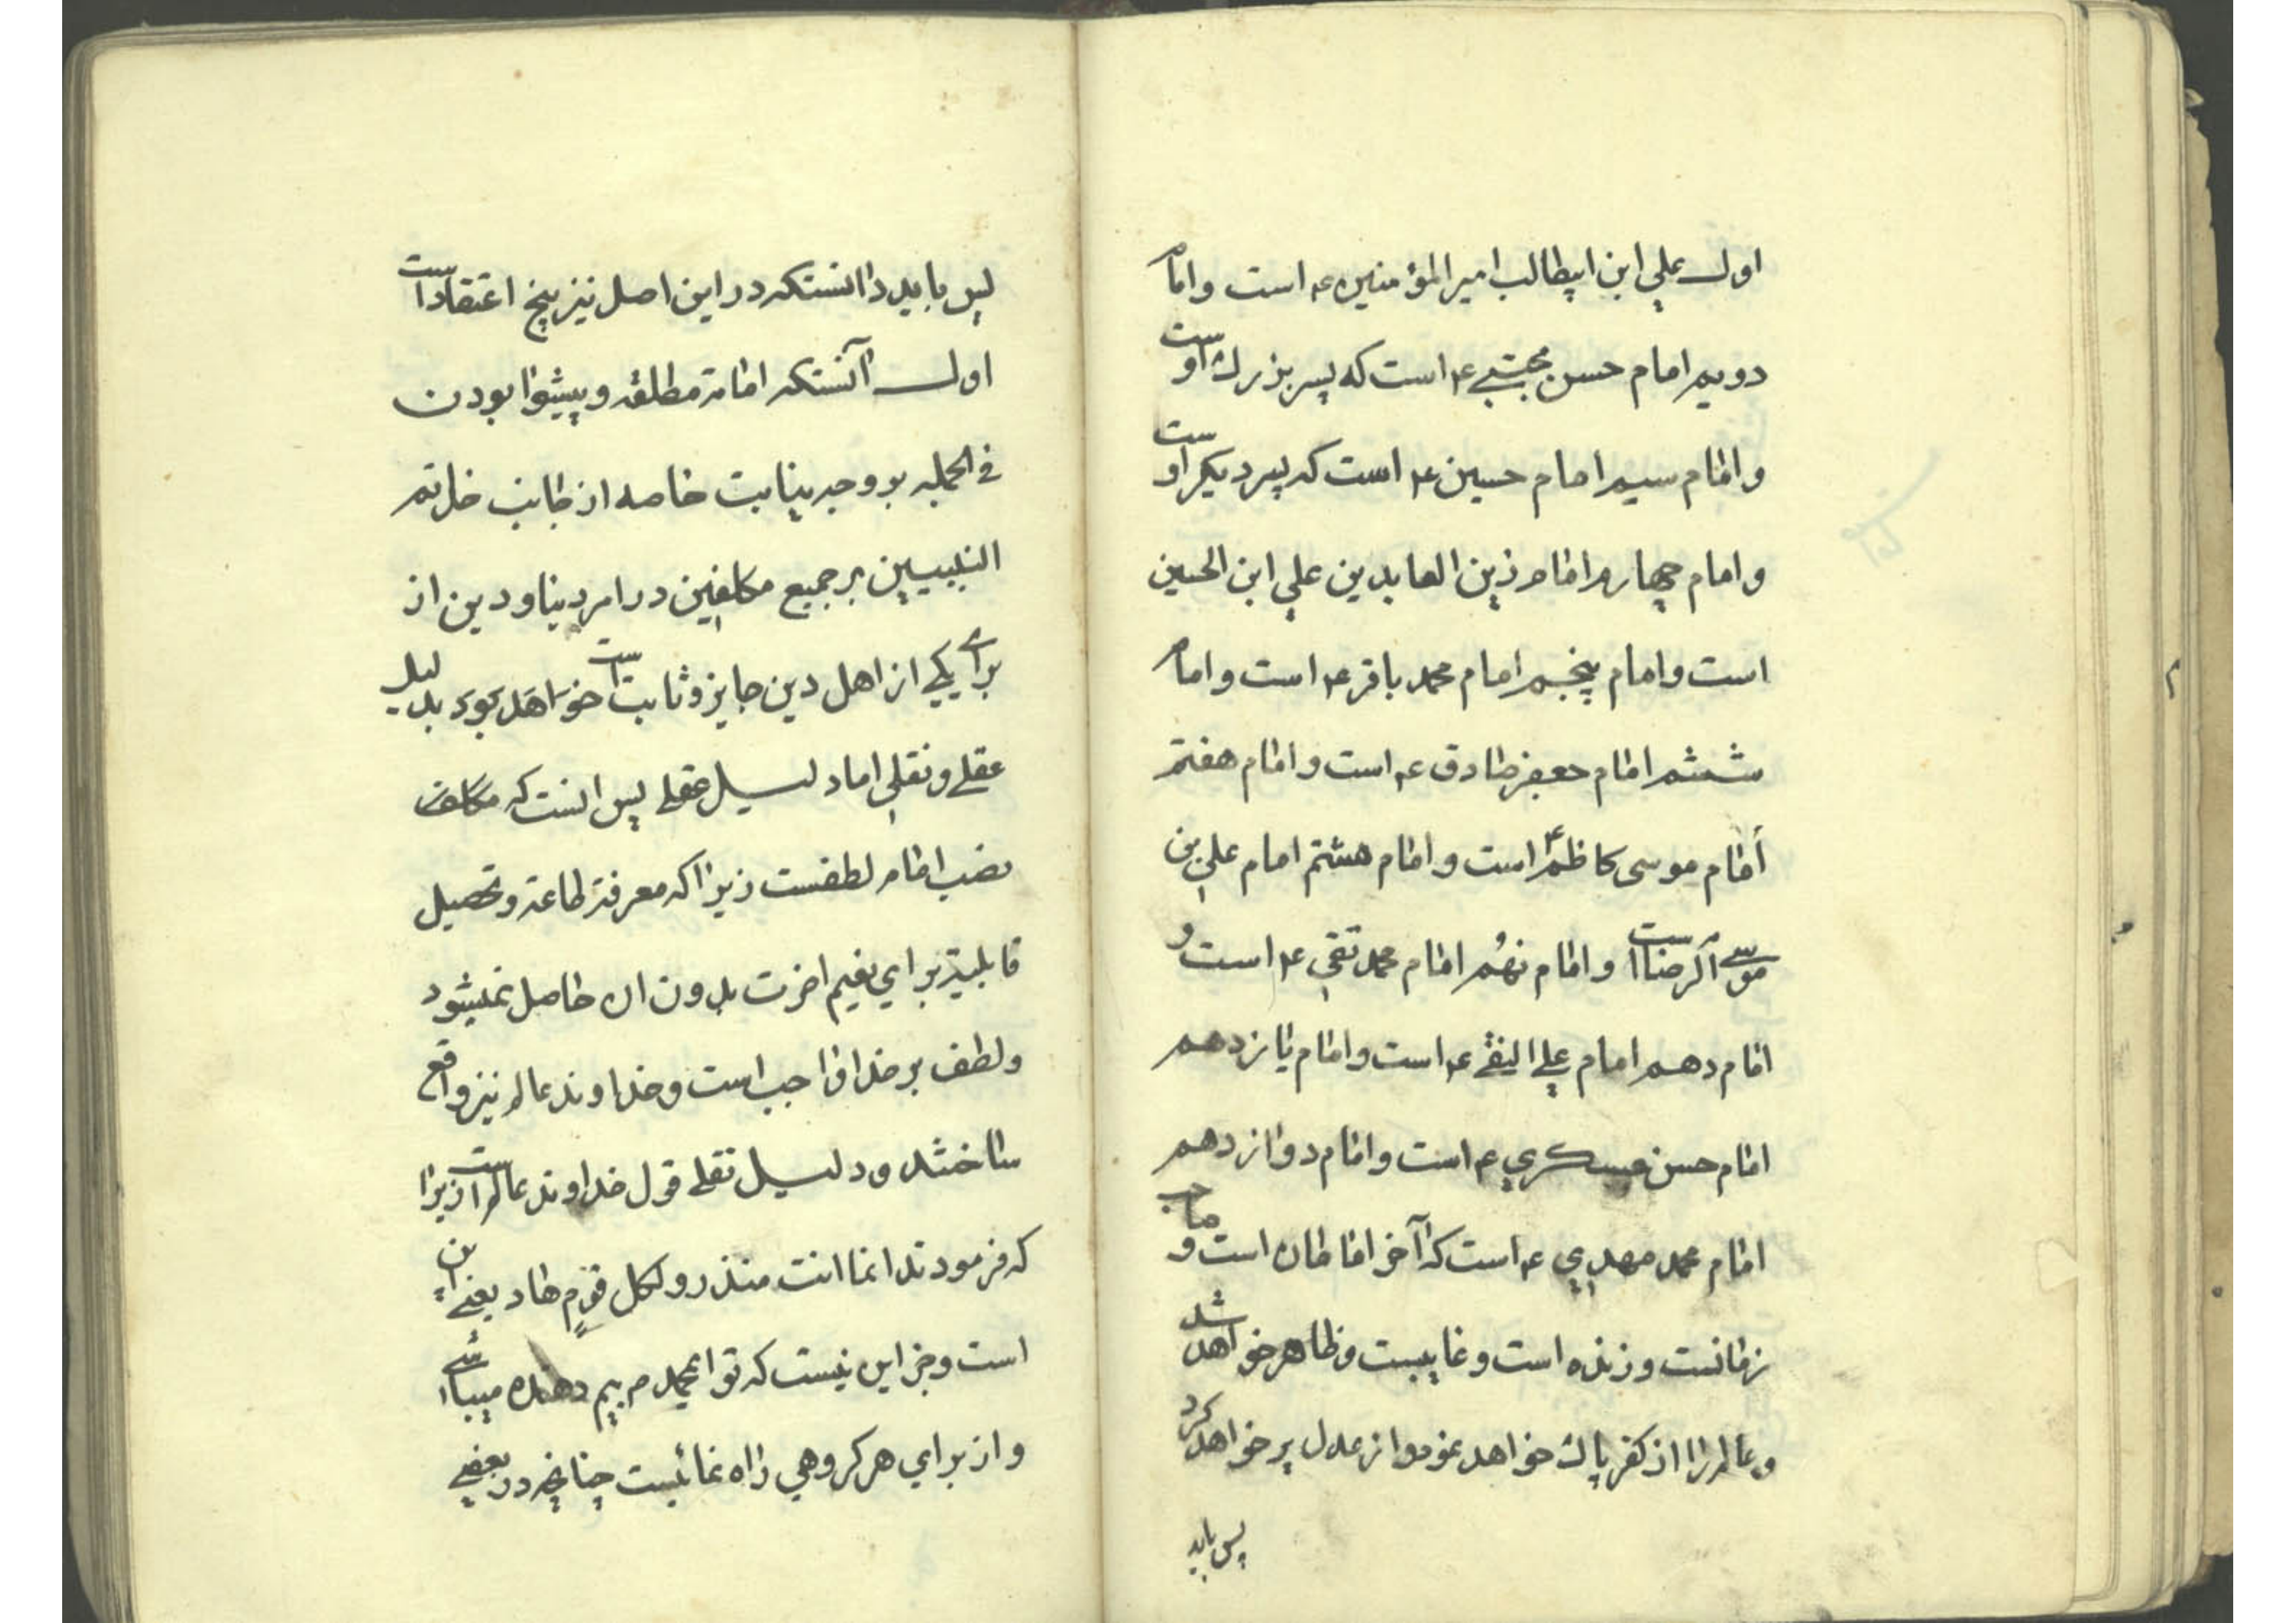 اول علي ابن ابيطالب امير المؤمنين ع است و امام
دويم امام حسن مجتبے ع است كه پسر بزرك اوست
و امام سيم امام حسين ع است كه پسر ديكر اوست
و امام چهارم امام زين العابدين علي ابن الحسين
است و امام پنجم امام محمد باقر ع است و امام
ششم امام جعفر صادق ع است و امام هفتم
امام موسى كاظم ع است و امام هشتم امام علي بن
موسے الرضا است و امام نهُم امام محمد تقي ع است و
امام دهم امام علے النقے ع است و امام يازدهم
امام حسن عسكري ع است و امام دوازدهم
امام محمد مهدي ع است كه آخر امامان است و صاحب
زمانست و زنده است و غايبست و ظاهر خواهد شد
و عالم را از كفر پاك خواهد نمود و از عدل پر خواهد كرد
پس بايد
پس بايد دانستكه در اين اصل نيز پنج اعتقاد است
اول آنستكه امامة مطلقه و پيشوا بودن
في الجمله بر وجه نيابت خاصه از جانب خاتم
النبيين بر جميع مكلفين در امر دنيا و دين از
براے يكے از اهل دين جايز و ثابت است خواهد بود بدليل
عقلے و نقلي اما دليل عقلے پس اينست كه مكلف
نصب امام لطفست زيرا كه معرفة طاعة و تحصيل
قابلية براي نعيم اخرت بدون ان حاصل نميشود
و لطف بر خدا واجب است و خداوند عالم نيز واقع
ساختند و دليل نقلے قول خداوند عالم است زيرا
كه فرمودند انما انت منذر و لكل قومٍ هاد يعنے اين
است و جز اين نيست كه تو ايمحمد م بيم دهنده ميباشے
و از براي هر كروهي راه نمائيست چنانچه در بعضے